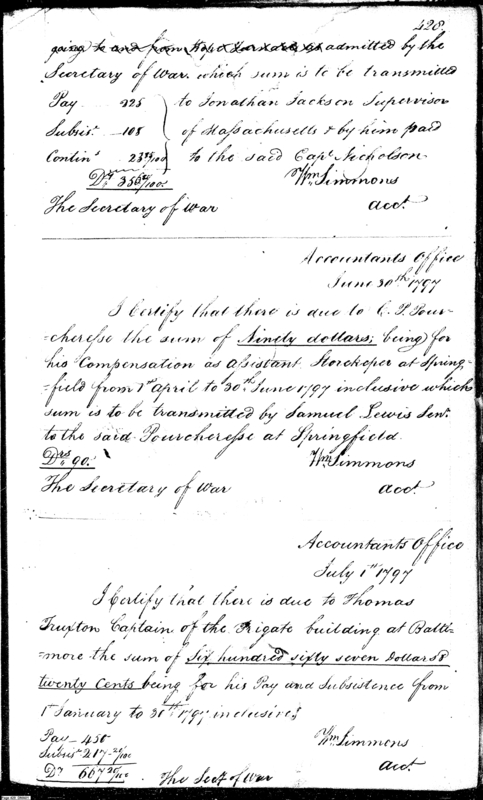 428
going to and from Hope Furnace as admitted by the
Secretary of War. which sum is to be transmitted
Pay 225 to Jonathan Jackson Supervisor
Subsist. 108 of Massachusetts & by him paid
Contins 23 /100 to the said Capt. Nicholson
Ds 356 /100 Wm Simmons
The Secretary of War acct.
Accountants Office
June 30th 1797
I Certify that there is due to C. P. Pour-
=cheresse the sum of Ninety dollars; being for
his Compensation as Assistant Storekeper at Spring-
=field from 1st April to 30th June 1797 inclusive which
sum is to be transmitted by Samuel Lewis Senr.
to the said Pourcheresse at Springfield
Drs 90. Wm Simmons
The Secretary of War acct.
Accountants Office
July 1st 1797
I Certify that there is due to Thomas
Truxton Captain of the Frigate building at Balti-
=more the sum of Six hundred sixty seven Dollars &
twenty Cents being for his Pay and Subsistence from
1st January to 30th 1797 inclusive
Pay - 450 Wm Simmons
Subsist 217-20/100 acct.
Ds 667 20/100 The Secy of War